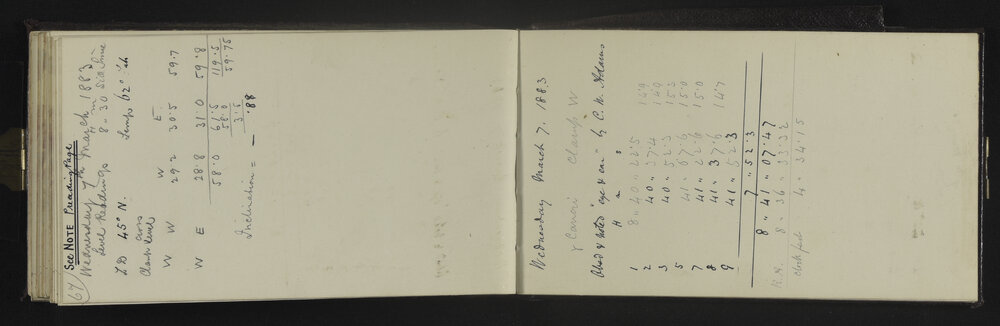 67
See NOTE Preceding Page
Wednesday 7th March 1883
Level Readings 8-30
ZD 45° N. Temp 62°
Cross
Clamp Level W E
W W 29.2 30.5 59.7
W E 28.8 31.0 59.8
58.0 61.5 119.5
58.0 59.75
3.5
Inclination = — .88
Wednesday March 7. 1883
γ Canci Clamp W
Obsd & noted "eye & ear" by C. W. Adams
H m s
1 8 " 40 " 22.5 14.9
2 40 " 37.4 14.9
3 40 " 52.3 15.3
5 41 " 07.6 15.0
7 41 " 22.6 15.0
8 41 " 37.6 14.7
9 41 " 52.3
7 " 52.3
8 " 41 " 07.47
R.A. 8 " 36 " 33.32
Clock fast 4 " 34.15